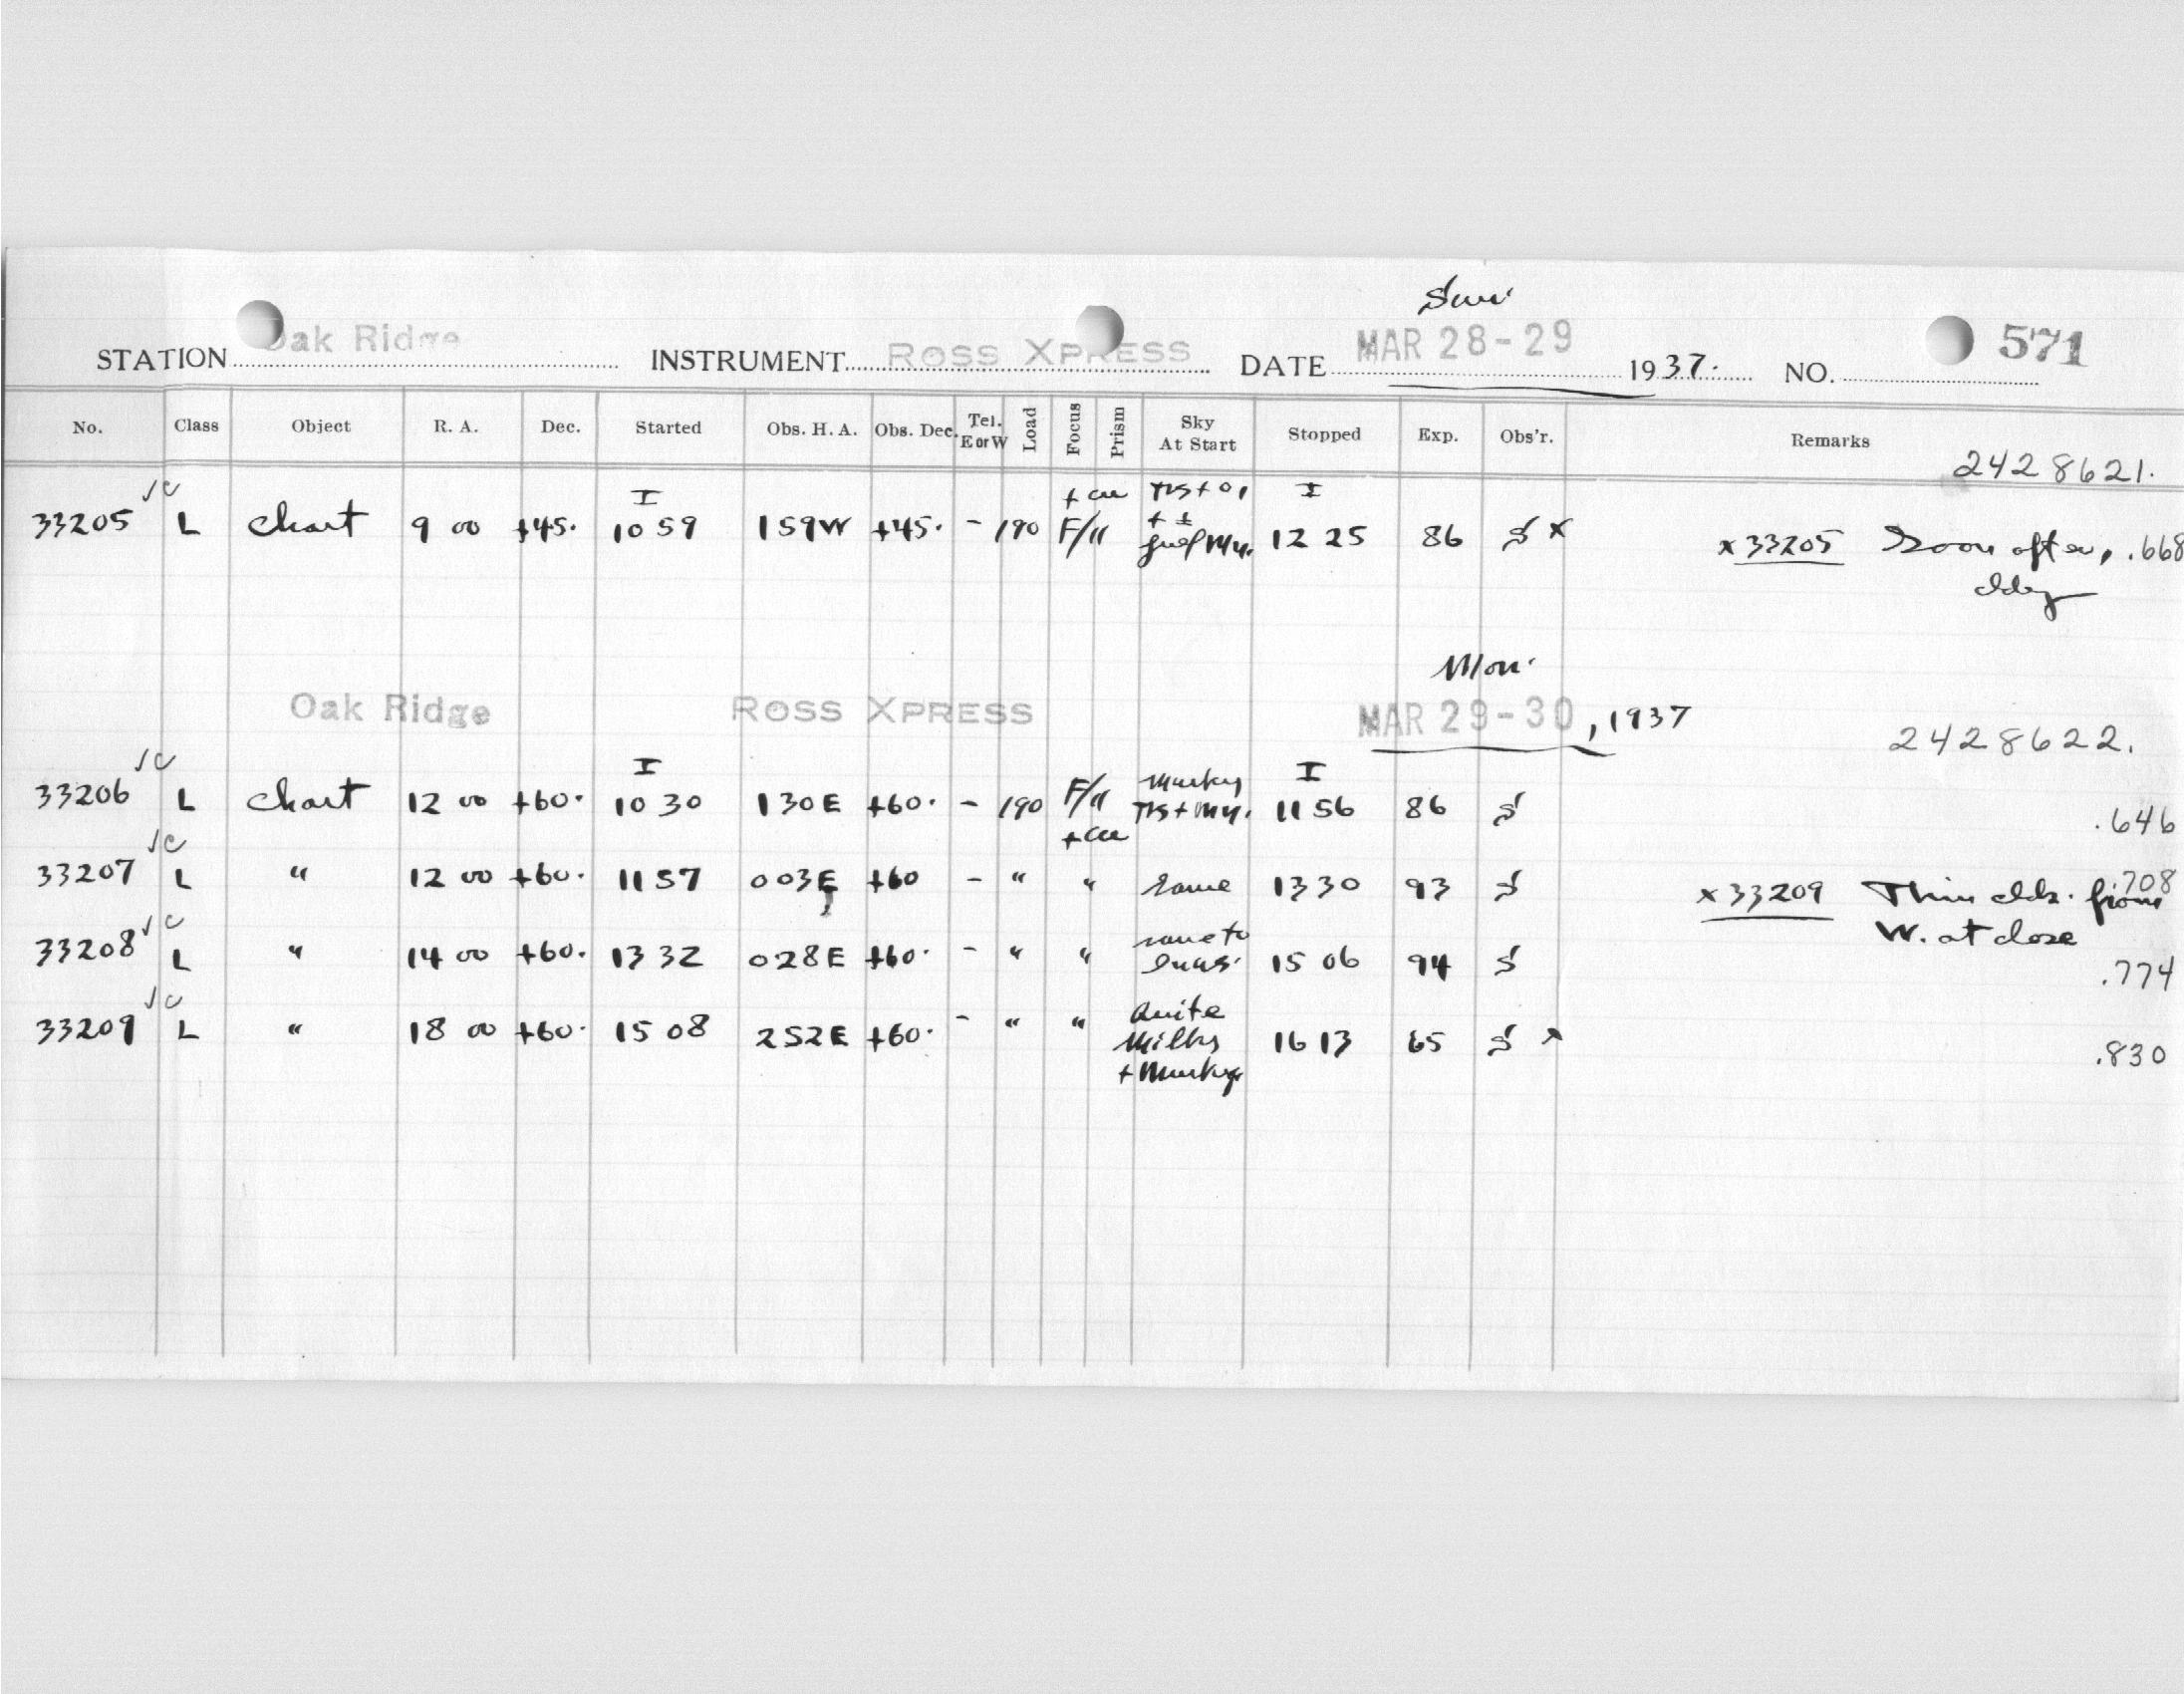 Sun.
STATION Oak Ridge INSTRUMENT ROSS XPRESS DATE MAR 28-29 1937. NO. 571
No. Class Object R. A. Dec. Started Obs. H. A. Obs. Dec. Tel. E or W Load Focus Prism Sky At Start Stopped Exp. Obs'r. Remarks
2428621.
√c I I
33205 L Chart 9 00 +45. 10 59 159W +45. - 190 F/11 12 25 86 S x x33205 Soon after, .668
cldy
Mon.
Oak Ridge ROSS XPRESS MAR 29-30, 1937
2428622.
√c I I
33206 L Chart 12 00 +60. 10 30 130E +60. - 190 F/11 Murky 11 56 86 S .646
√c
33207 L " 12 00 +60. 11 57 003E +60 - " " same 13 30 93 S .708
x33209 Thin clds. from
W. at close
√c
33208 L " 14 00 +60. 13 32 028E +60. - " " same to 15 06 94 S .774
√c
33209 L " 18 00 +60. 15 08 252E +60. - " " Quite Milky + Murky 16 13 65 S x .830